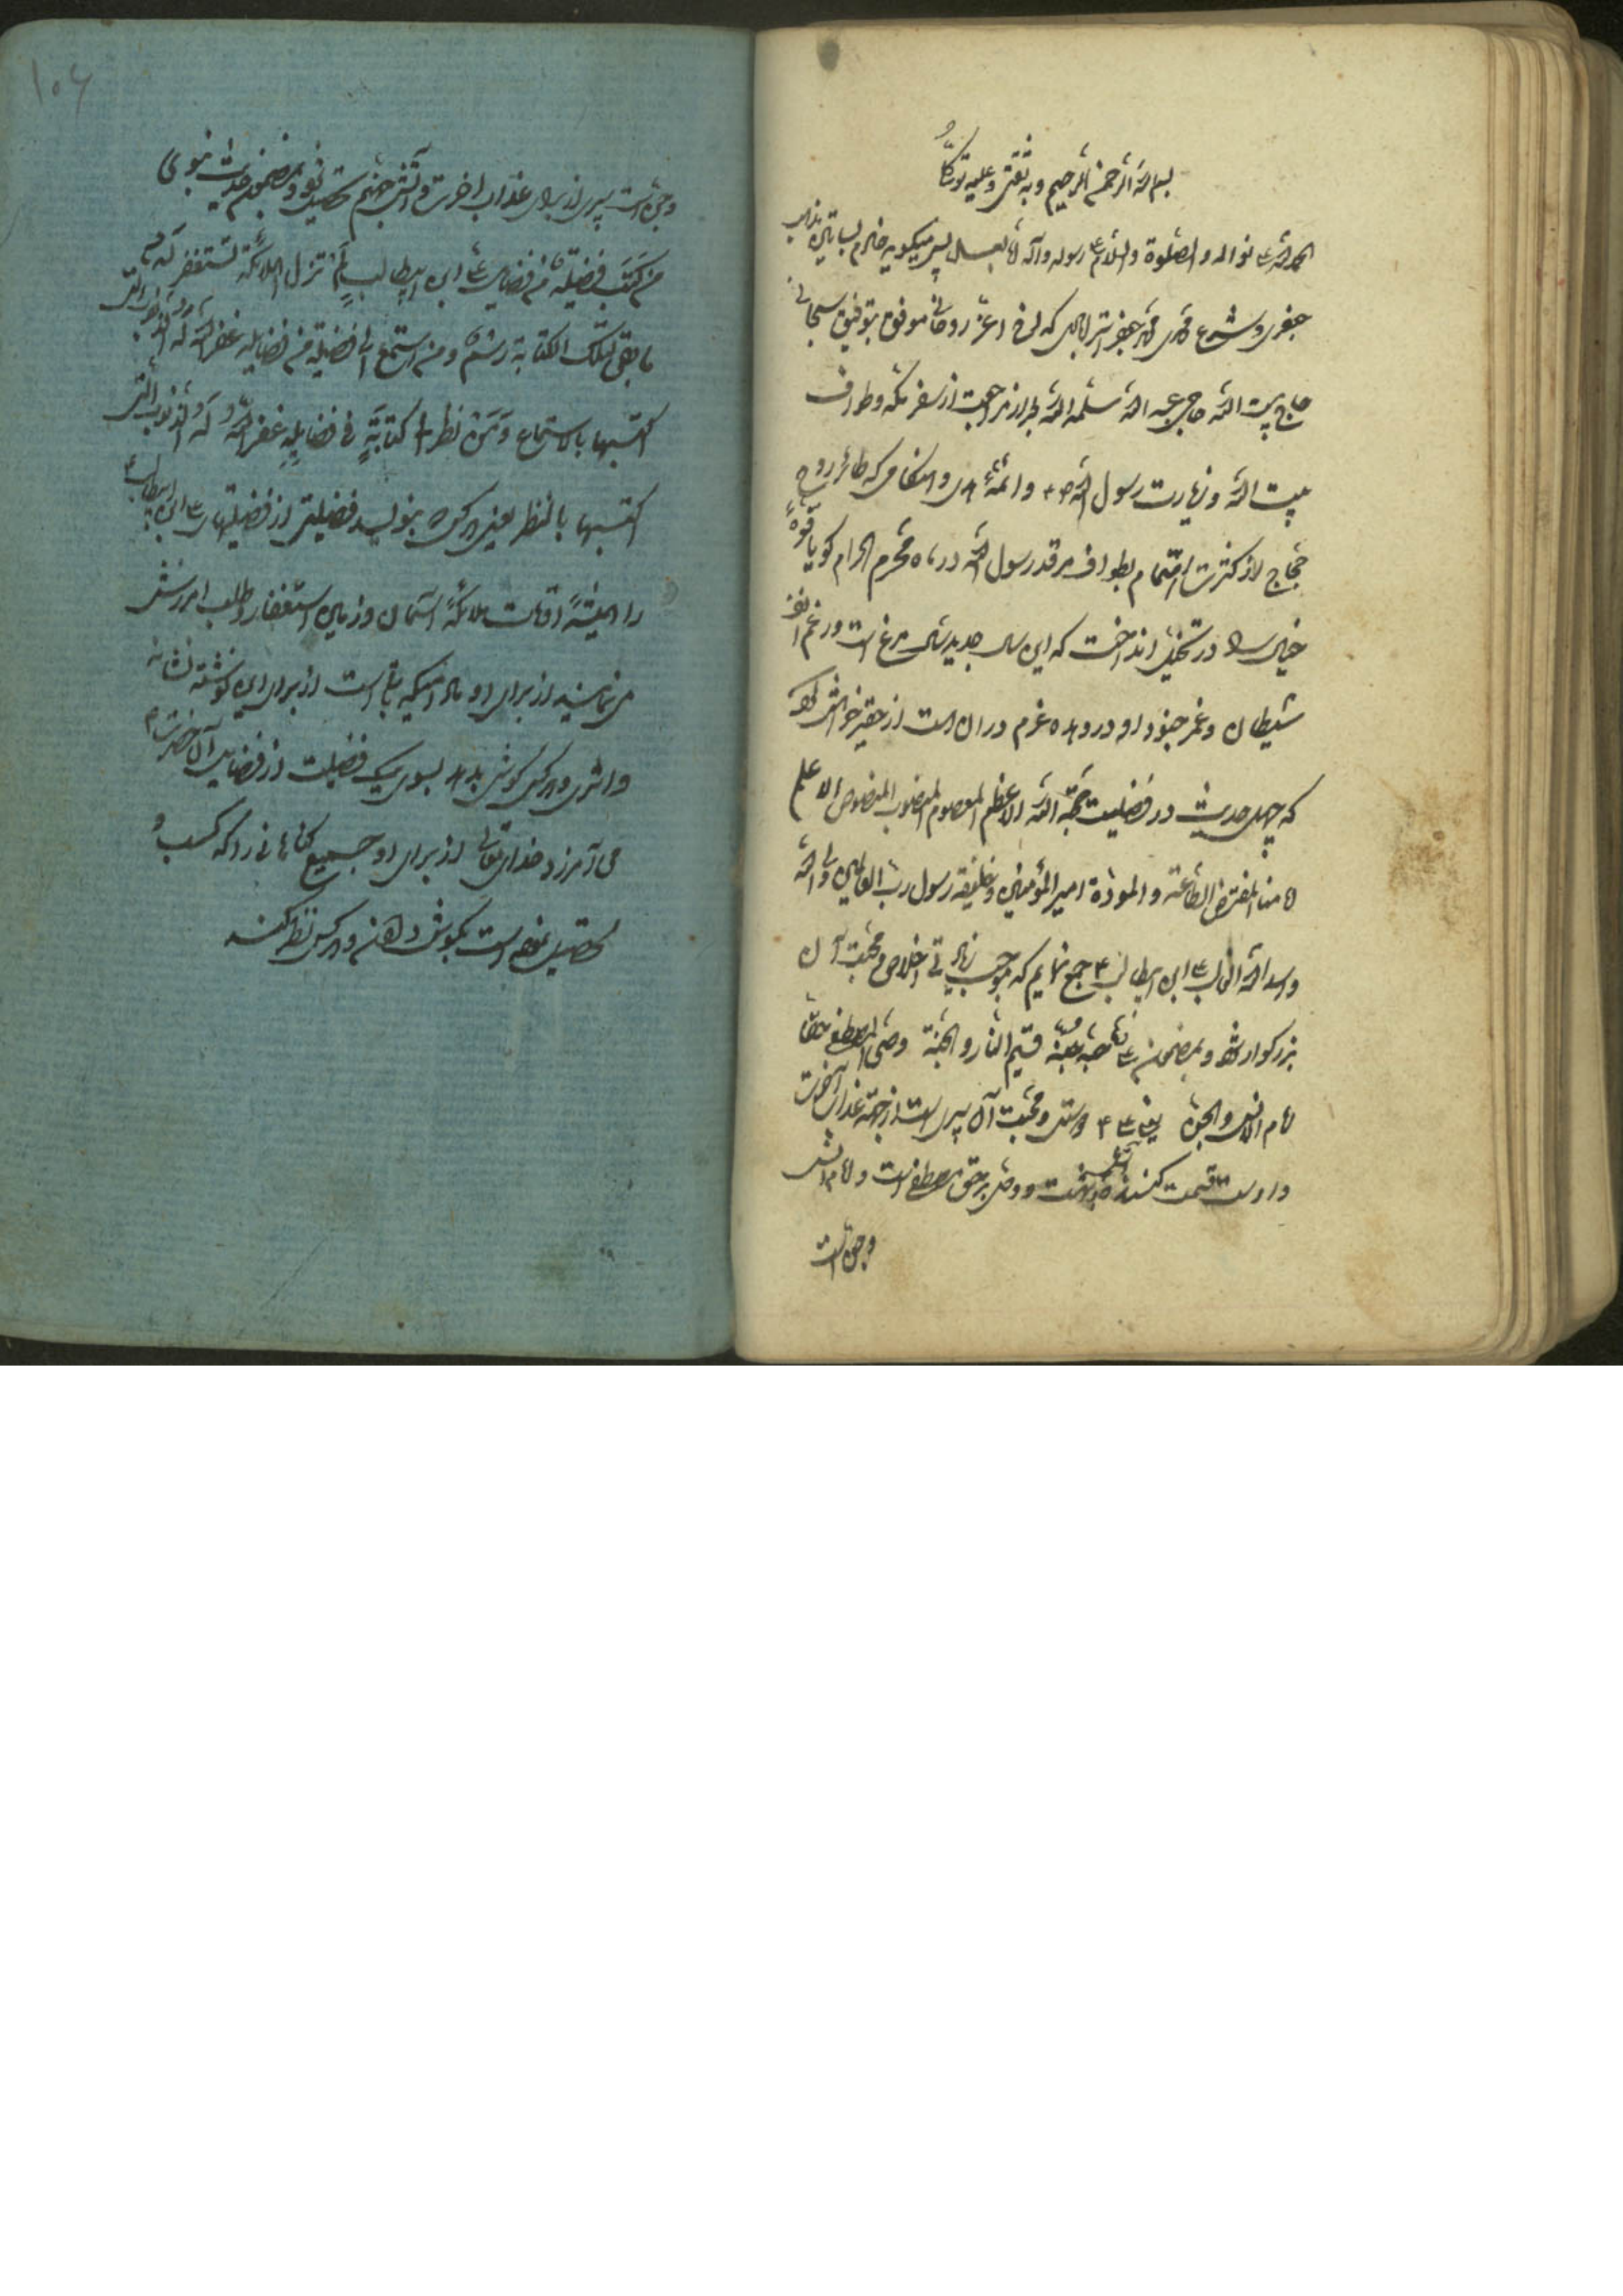 بسم الله الرحمن الرحیم و به ثقتی و علیه توکلی
الحمد لله علی نواله و الصلوة و السلام علی رسوله و آله اما بعد پس میگوید خادم بساتین مذهب
جعفری و شرع محمدی محمد جعفر استرابادی که اخ اعز روحانی موفق بتوفیق سبحانی
حاج بیت الله حاجی عبد الله سلمه الله بعد از مراجعت از سفر مکه و طواف
بیت الله و زیارت رسول الله ص و ائمه هدی و هنگامی که طائر روح
حجاج از کثرت اهتمام بطواف مرقد رسول الله در ماه محرم الحرام کویا قوه
خیال را در تخیل انداخت که این سال جدید شاهی مرغ است و رغم انف
شیطان و غمر جنود او در وی عزم در ان است از حقیر خواهش نمود
که چهل حدیث در فضیلت حجة الله الاعظم المعصوم المنصوب المنصوص الاعلم
امامنا المفترض الطاعة و المودة امیر المؤمنین و خلیفه رسول رب العالمین ولی الله
و اسد الله الغالب علی ابن ابیطالب ع جمع نمایم که موجب زیادتی اخلاص و محبت آن
بزرکوار شود و بمضمون علی حبه جنة قسیم النار و الجنة وصی المصطفی حقا
امام الانس و الجنة یعنی علی ع دوستی و محبت آن سپری است از جهة عذاب آخرت
و اوست قسمت کننده بهشت و وصی بر حق مصطفی است و امام انس
و جن است
۱۰۶
و جن است سپری از برای عذاب اخرت و آتش جهنم تحصیل شود و بمضمون حدیث نبوی
من کتب فضیلة من فضایل علی ابن ابیطالب لم تزل الملائکة تستغفر له
ما بقی لتلک الکتابة رسم و من استمع الی فضیلة من فضایله غفر الله له الذنوب التی
اکتسبها بالاستماع و من نظر الی کتابة فی فضایله غفر الله له الذنوب التی
اکتسبها بالنظر یعنی هر کس بنویسد فضیلتی از فضیلتهای علی ابن ابیطالب ع
را همیشه اوقات ملائکه آسمان و زمین استغفار و طلب امرزش
می نمایند از برای او مادامیکه باقی است از برای این نوشته نشانه
و اثری و هر کس کوش بدهد بسوی یک فضیلت از فضایل آن حضرت ع
می آمرزد خدای تعالی از برای او جمیع کناهانی را که کسب و
تحصیل نموده است بکوش دادن و هر کس نظر کند